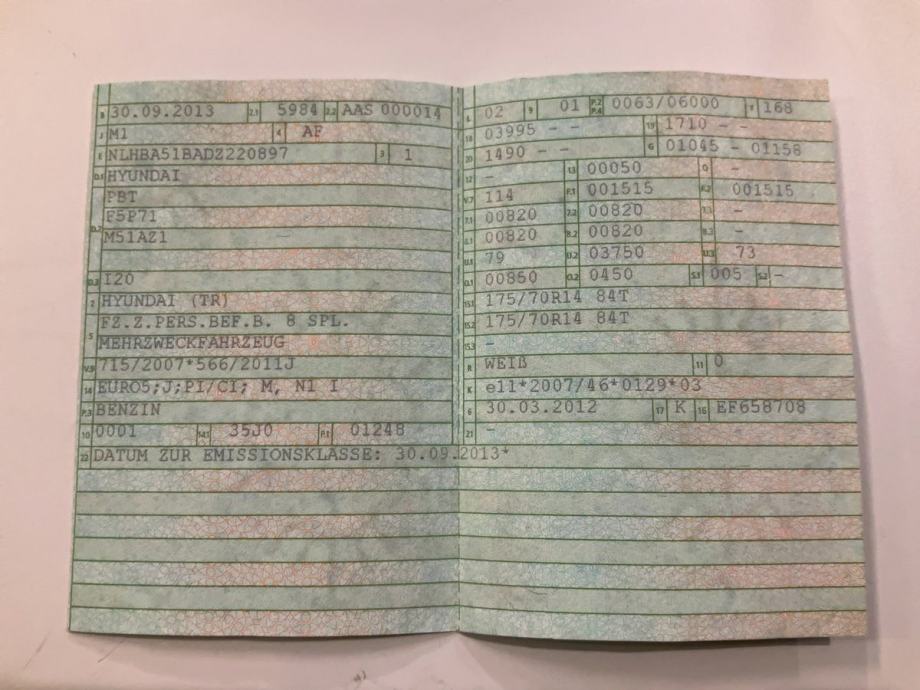 B 30.09.2013 2.1 5984 2.2 AAS 000014
J M1 4 AF
E NLHBA51BADZ220897 3 1
D.1 HYUNDAI
D.2 PBT
F5P71
M51AZ1
D.3 I20
2 HYUNDAI (TR)
5 FZ.Z.PERS.BEF.B. 8 SPL.
MEHRZWECKFAHRZEUG
V.9 715/2007*566/2011J
14 EURO5;J;PI/CI; M, N1 I
P.3 BENZIN
10 0001 14.1 35J0 P.1 01248
22 DATUM ZUR EMISSIONSKLASSE: 30.09.2013*
L 02 9 01 P.2 P.4 0063/06000 T 168
18 03995 - - 19 1710 - -
20 1490 - - G 01045 - 01158
12 - 13 00050 Q -
V.7 114 F.1 001515 F.2 001515
7.1 00820 7.2 00820 7.3 -
8.1 00820 8.2 00820 8.3 -
U.1 79 U.2 03750 U.3 73
O.1 00850 O.2 0450 S.1 005 S.2 -
15.1 175/70R14 84T
15.2 175/70R14 84T
15.3 -
R WEIß 11 0
K e11*2007/46*0129*03
6 30.03.2012 17 K 16 EF658708
21 -